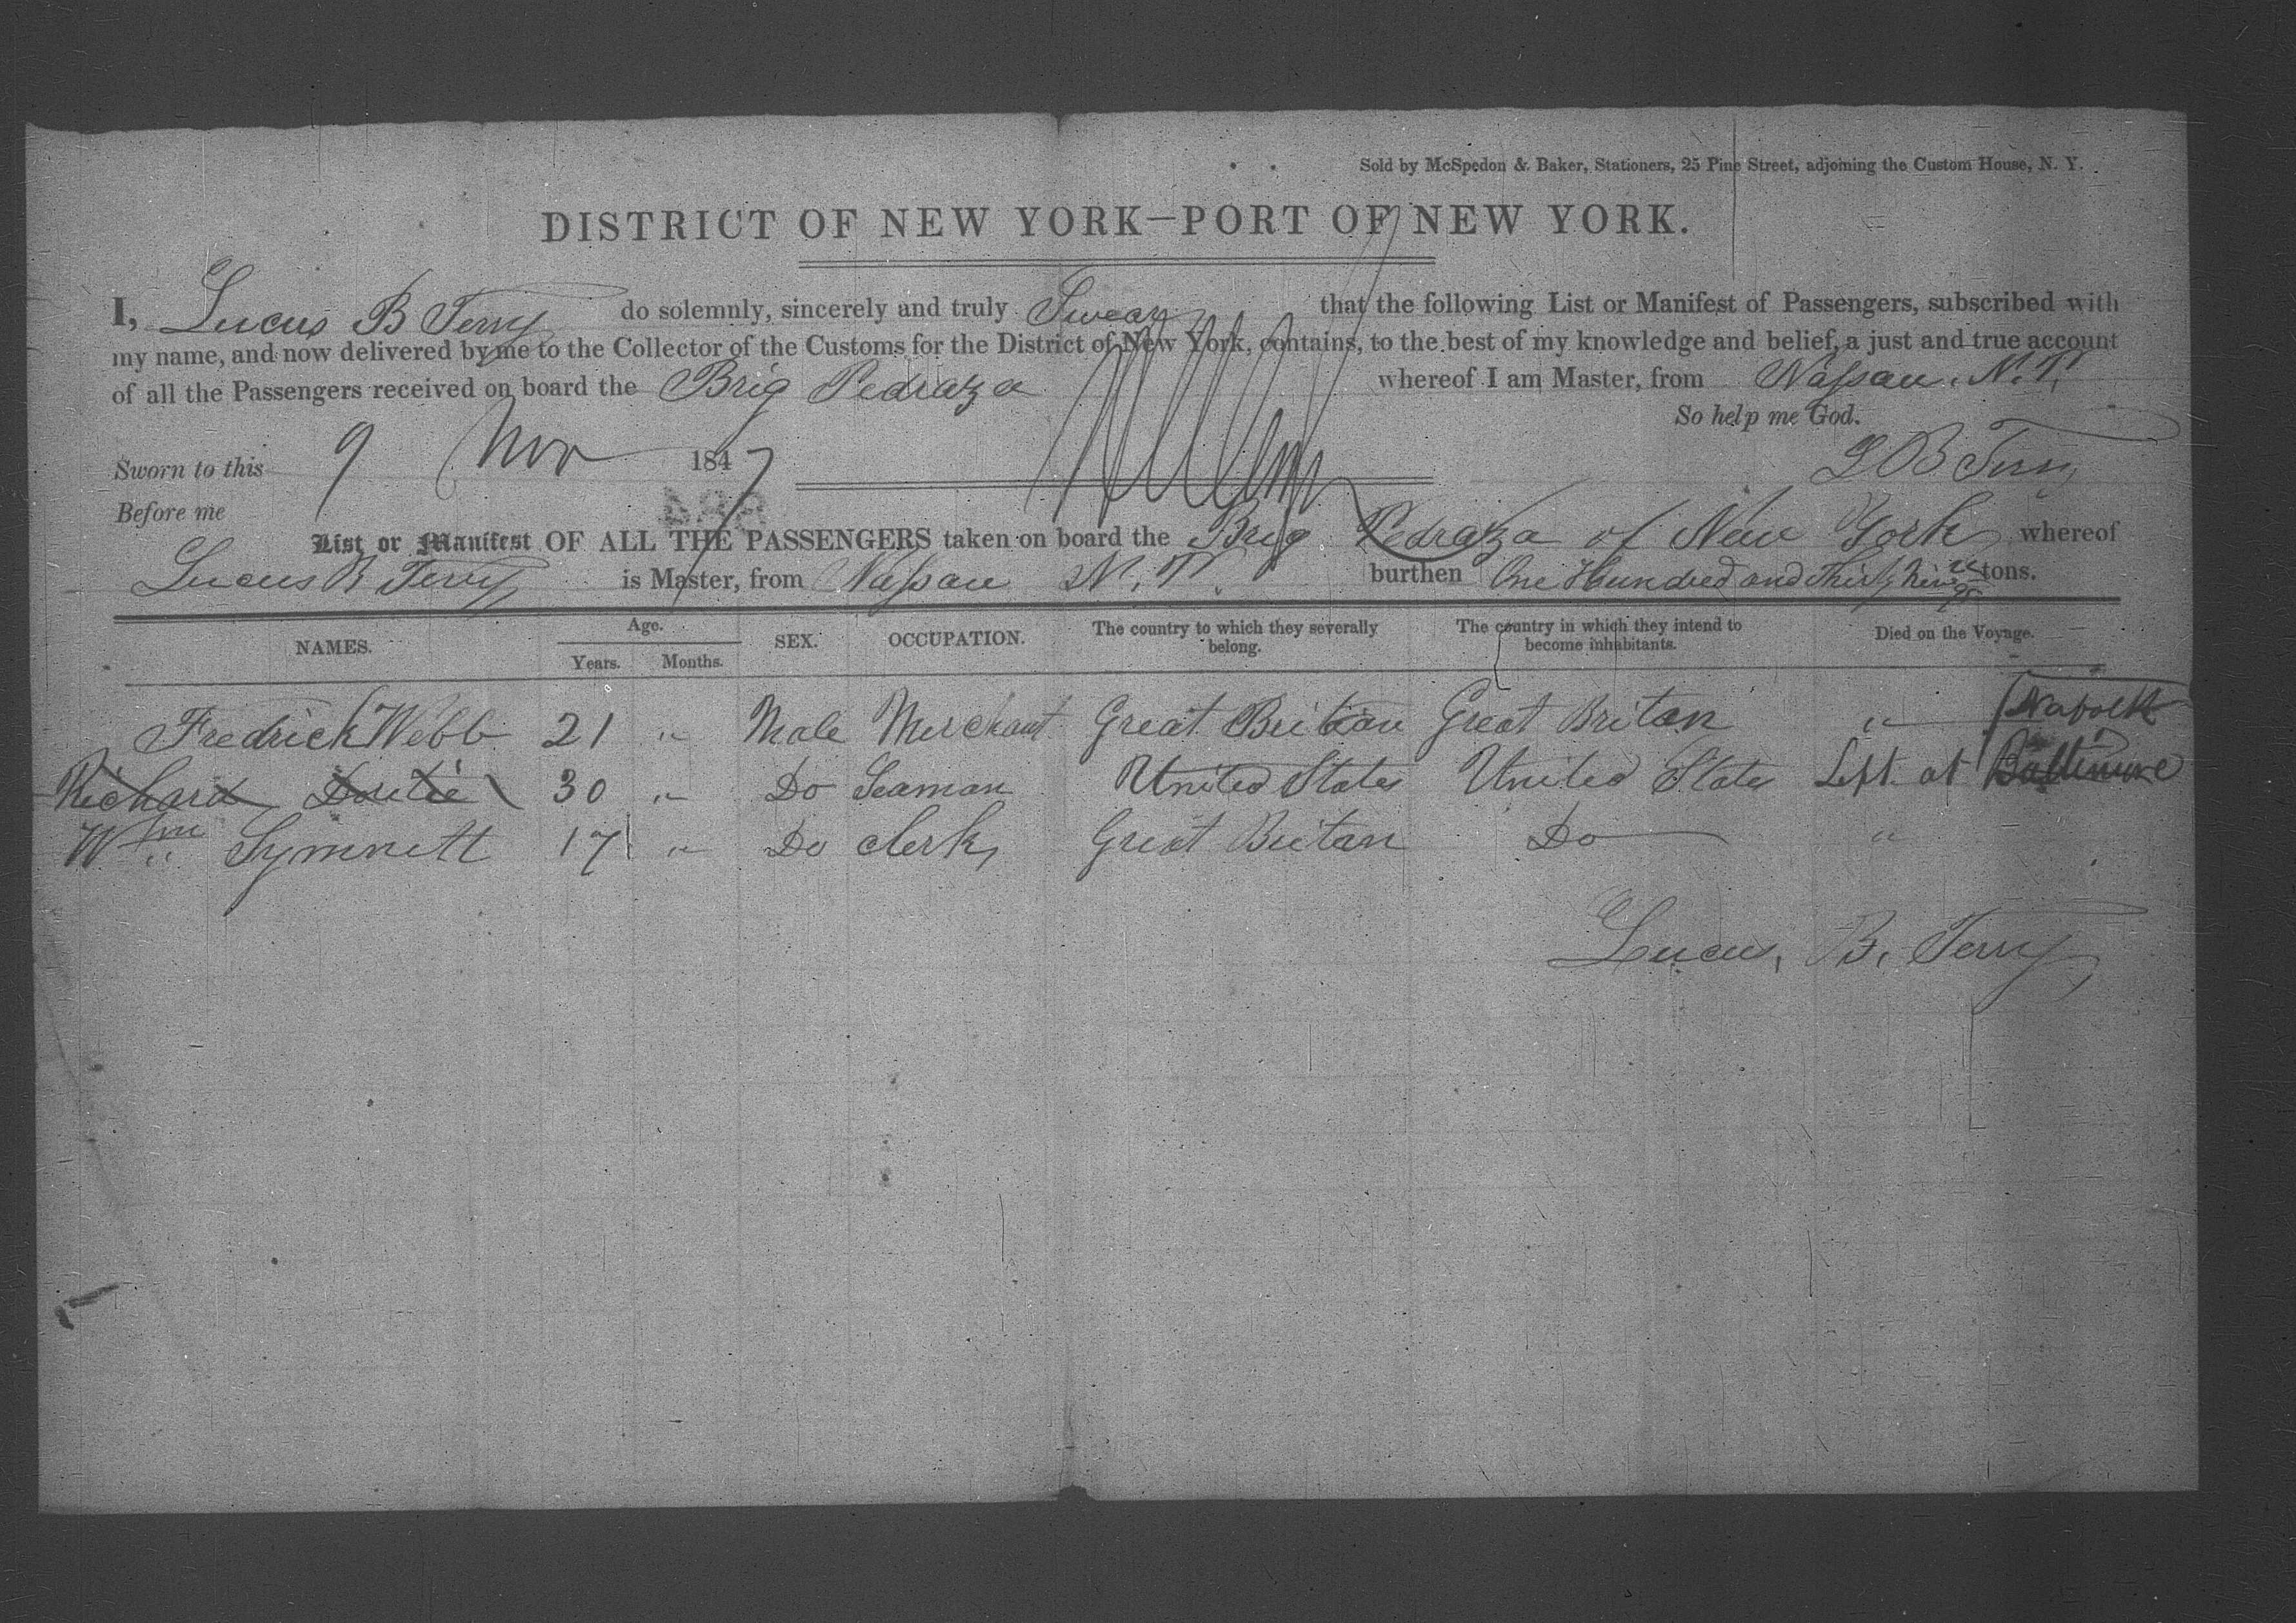 Sold by McSpedon & Baker, Stationers, 25 Pine Street, adjoining the Custom House, N. Y.
DISTRICT OF NEW YORK—PORT OF NEW YORK.
I, Lucus B Terry do solemnly, sincerely and truly Swear that the following List or Manifest of Passengers, subscribed with
my name, and now delivered by me to the Collector of the Customs for the District of New York, contains, to the best of my knowledge and belief, a just and true account
of all the Passengers received on board the Brig Pedraza whereof I am Master, from Nassau. N.P.
So help me God.
Sworn to this 9 Nov 1847 L B Terry
Before me
List or Manifest OF ALL THE PASSENGERS taken on board the Brig Pedraza of New York whereof
Lucus B Terry is Master, from Nassau N.P. burthen One Hundred and Thirty Nine tons.
NAMES. Age. Years. Months. SEX. OCCUPATION. The country to which they severally belong. The country in which they intend to become inhabitants. Died on the Voyage.
Fredrick Webb 21 " Male Merchant Great Britan Great Britan " Norfolk
Richard 30 " Do Seaman United States United States Left at Baltimore
Wm Symnett 17 " Do Clerk Great Britan Do "
Lucus, B, Terry